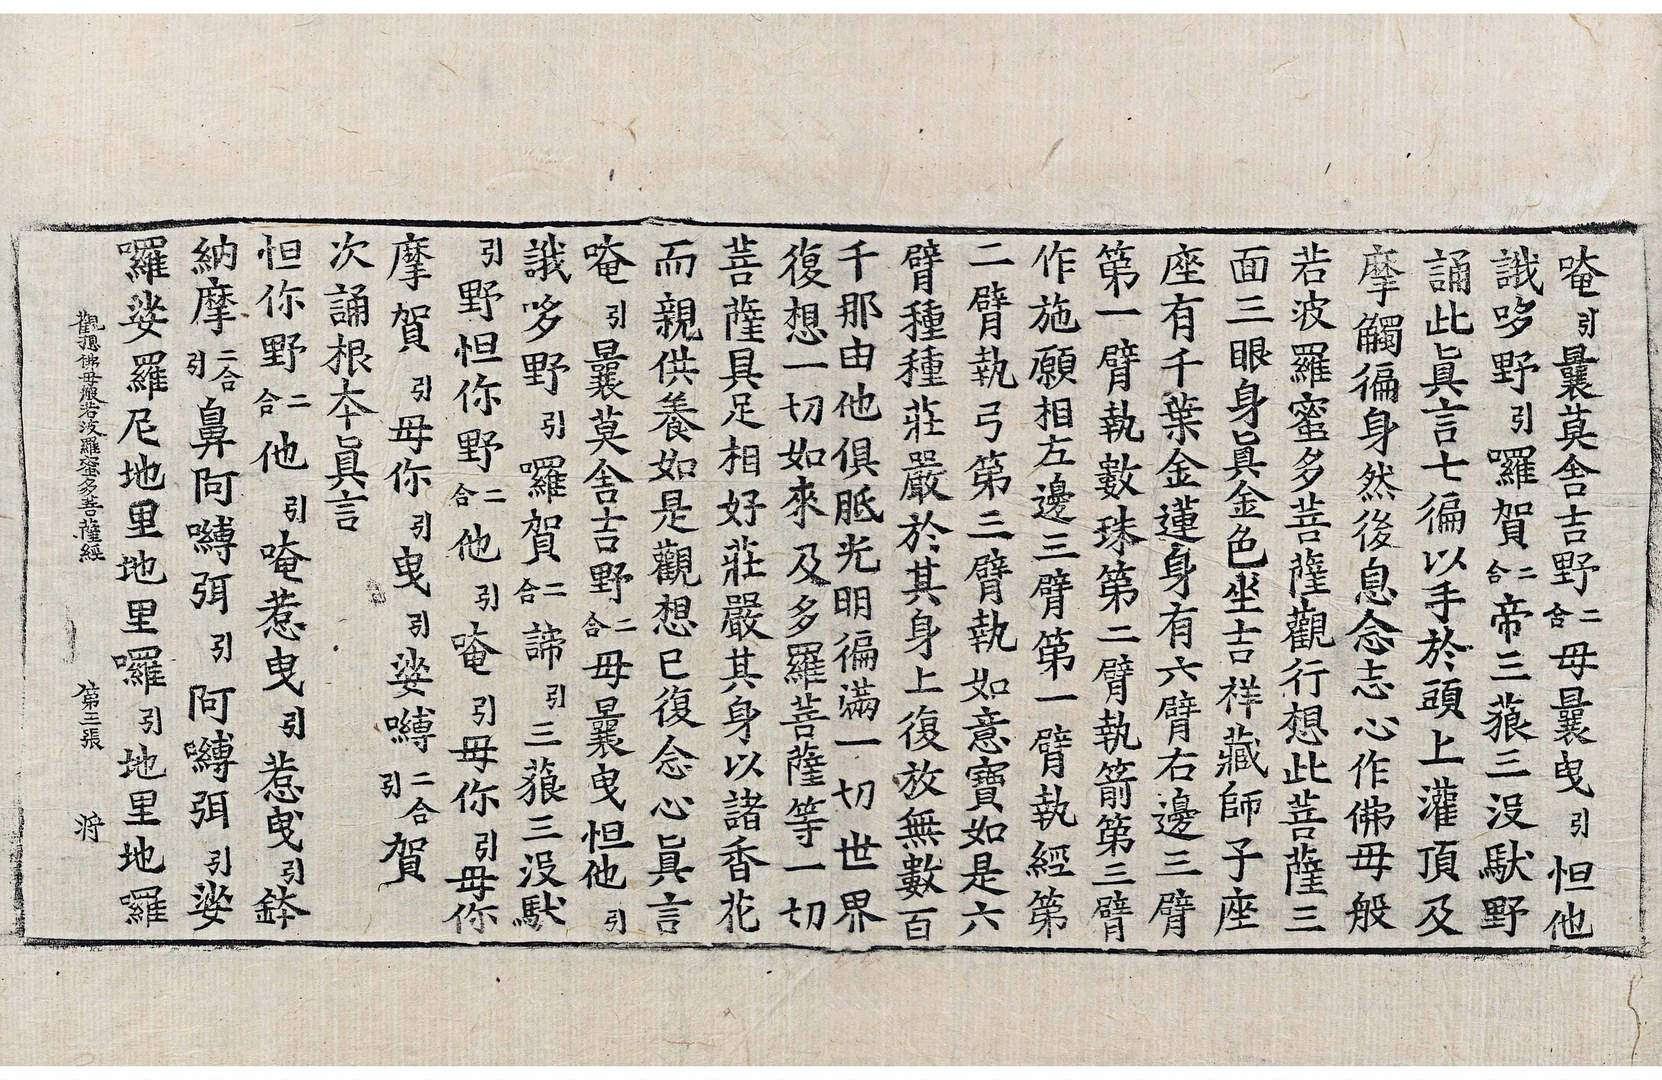 唵引曩莫舍吉野二合毋曩曳引怛他
誐哆野引囉賀二合帝三藐三沒馱野
誦此眞言七徧以手於頭上灌頂及
摩觸徧身然後息念志心作佛毋般
若波羅蜜多菩薩觀行想此菩薩三
面三眼身眞金色坐吉祥藏師子座
座有千葉金蓮身有六臂右邊三臂
第一臂執數珠第二臂執箭第三臂
作施願相左邊三臂第一臂執經第
二臂執弓第三臂執如意寶如是六
臂種種莊嚴於其身上復放無數百
千那由他俱胝光明徧滿一切世界
復想一切如來及多羅菩薩等一切
菩薩具足相好莊嚴其身以諸香花
而親供養如是觀想已復念心眞言
唵引曩莫舍吉野二合毋曩曳怛他引
誐哆野引囉賀二合諦引三藐三沒馱
引野怛你野二合他引唵引毋你引毋你
摩賀引毋你引曳引娑嚩二合引賀
次誦根本眞言
怛你野二合他引唵惹曳引惹曳引鉢
納摩二合引鼻阿嚩弭引阿嚩弭引娑
囉娑羅尼地里地里囉引地里地囉
觀想佛毋般若波羅蜜多菩薩經 第三張 将